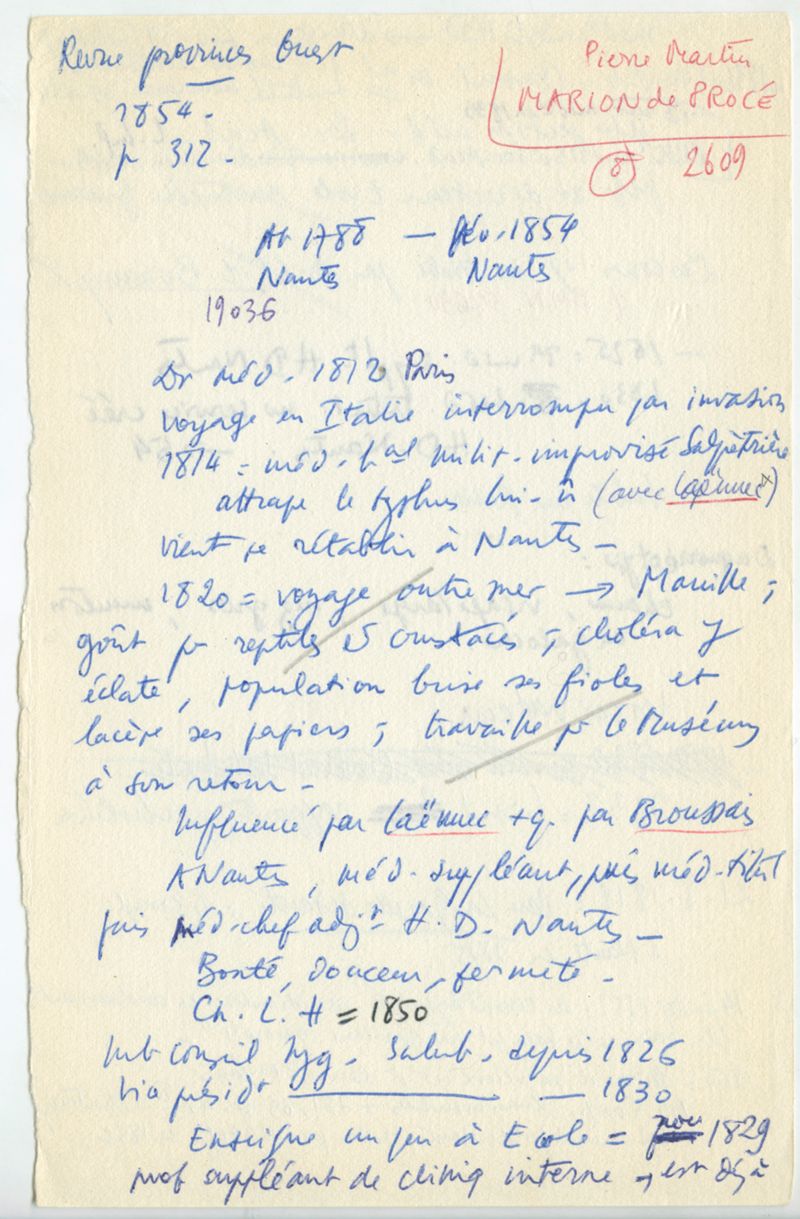 Revue provinces Ouest
1854.
p 312.
Pierre Martin
MARION de PROCÉ
8 2609
1788 — Fév. 1854
Nantes Nantes
19036
Dr méd. 1812 Paris
voyage en Italie interrompu par invasion
1814 = méd. hal milit. improvisé Salpêtrière
attrape le typhus lui-m̂ (avec Laënnec)
vient se rétablir à Nantes –
1820 = voyage outre mer → Manille ;
goût pr reptiles et crustacés ; choléra y
éclate, population brise ses fioles et
lacère ses papiers ; travaille pr le Muséum
à son retour –
Influencé par Laënnec + q. par Broussais
A Nantes, méd. suppléant, puis méd. titul
puis méd. chef adjt H. D. Nantes –
Bonté, douceur, fermeté.
Ch. L. H = 1850
Mb conseil hyg. Salub. depuis 1826
Vice présidt ——— — 1830
Enseigne un peu à Ecole = 1829
prof suppléant de cliniq interne , est déjà